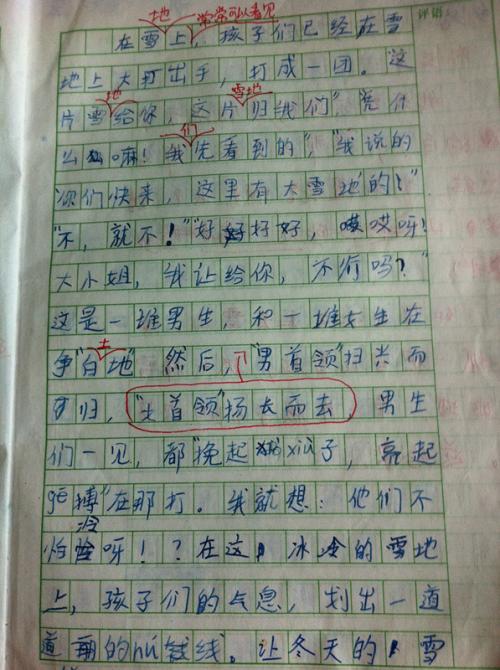 评语
地 常常可以看见
在雪上，孩子们已经在雪
地上大打出手，打成一团。这
地 雪地
片雪给你，这片归我们”“凭什
们
么嘛！我先看到的”，“我说的
你们快来，这里有大雪地的！”
“不，就不！”“好好好好，哎哎呀！
大小姐，我让给你，不行吗？”
这是一堆男生，和一堆女生在
土
争“白地”然后，“男首领”扫兴而
归，“女首领”扬长而去，男生
们一见，都“挽起xiù子，亮起
gē搏”在那打。我就想：他们不
冷
怕呀！？在这冰冷的雪地
上，孩子们的气息，划出一道
道的线。让冬天的雪